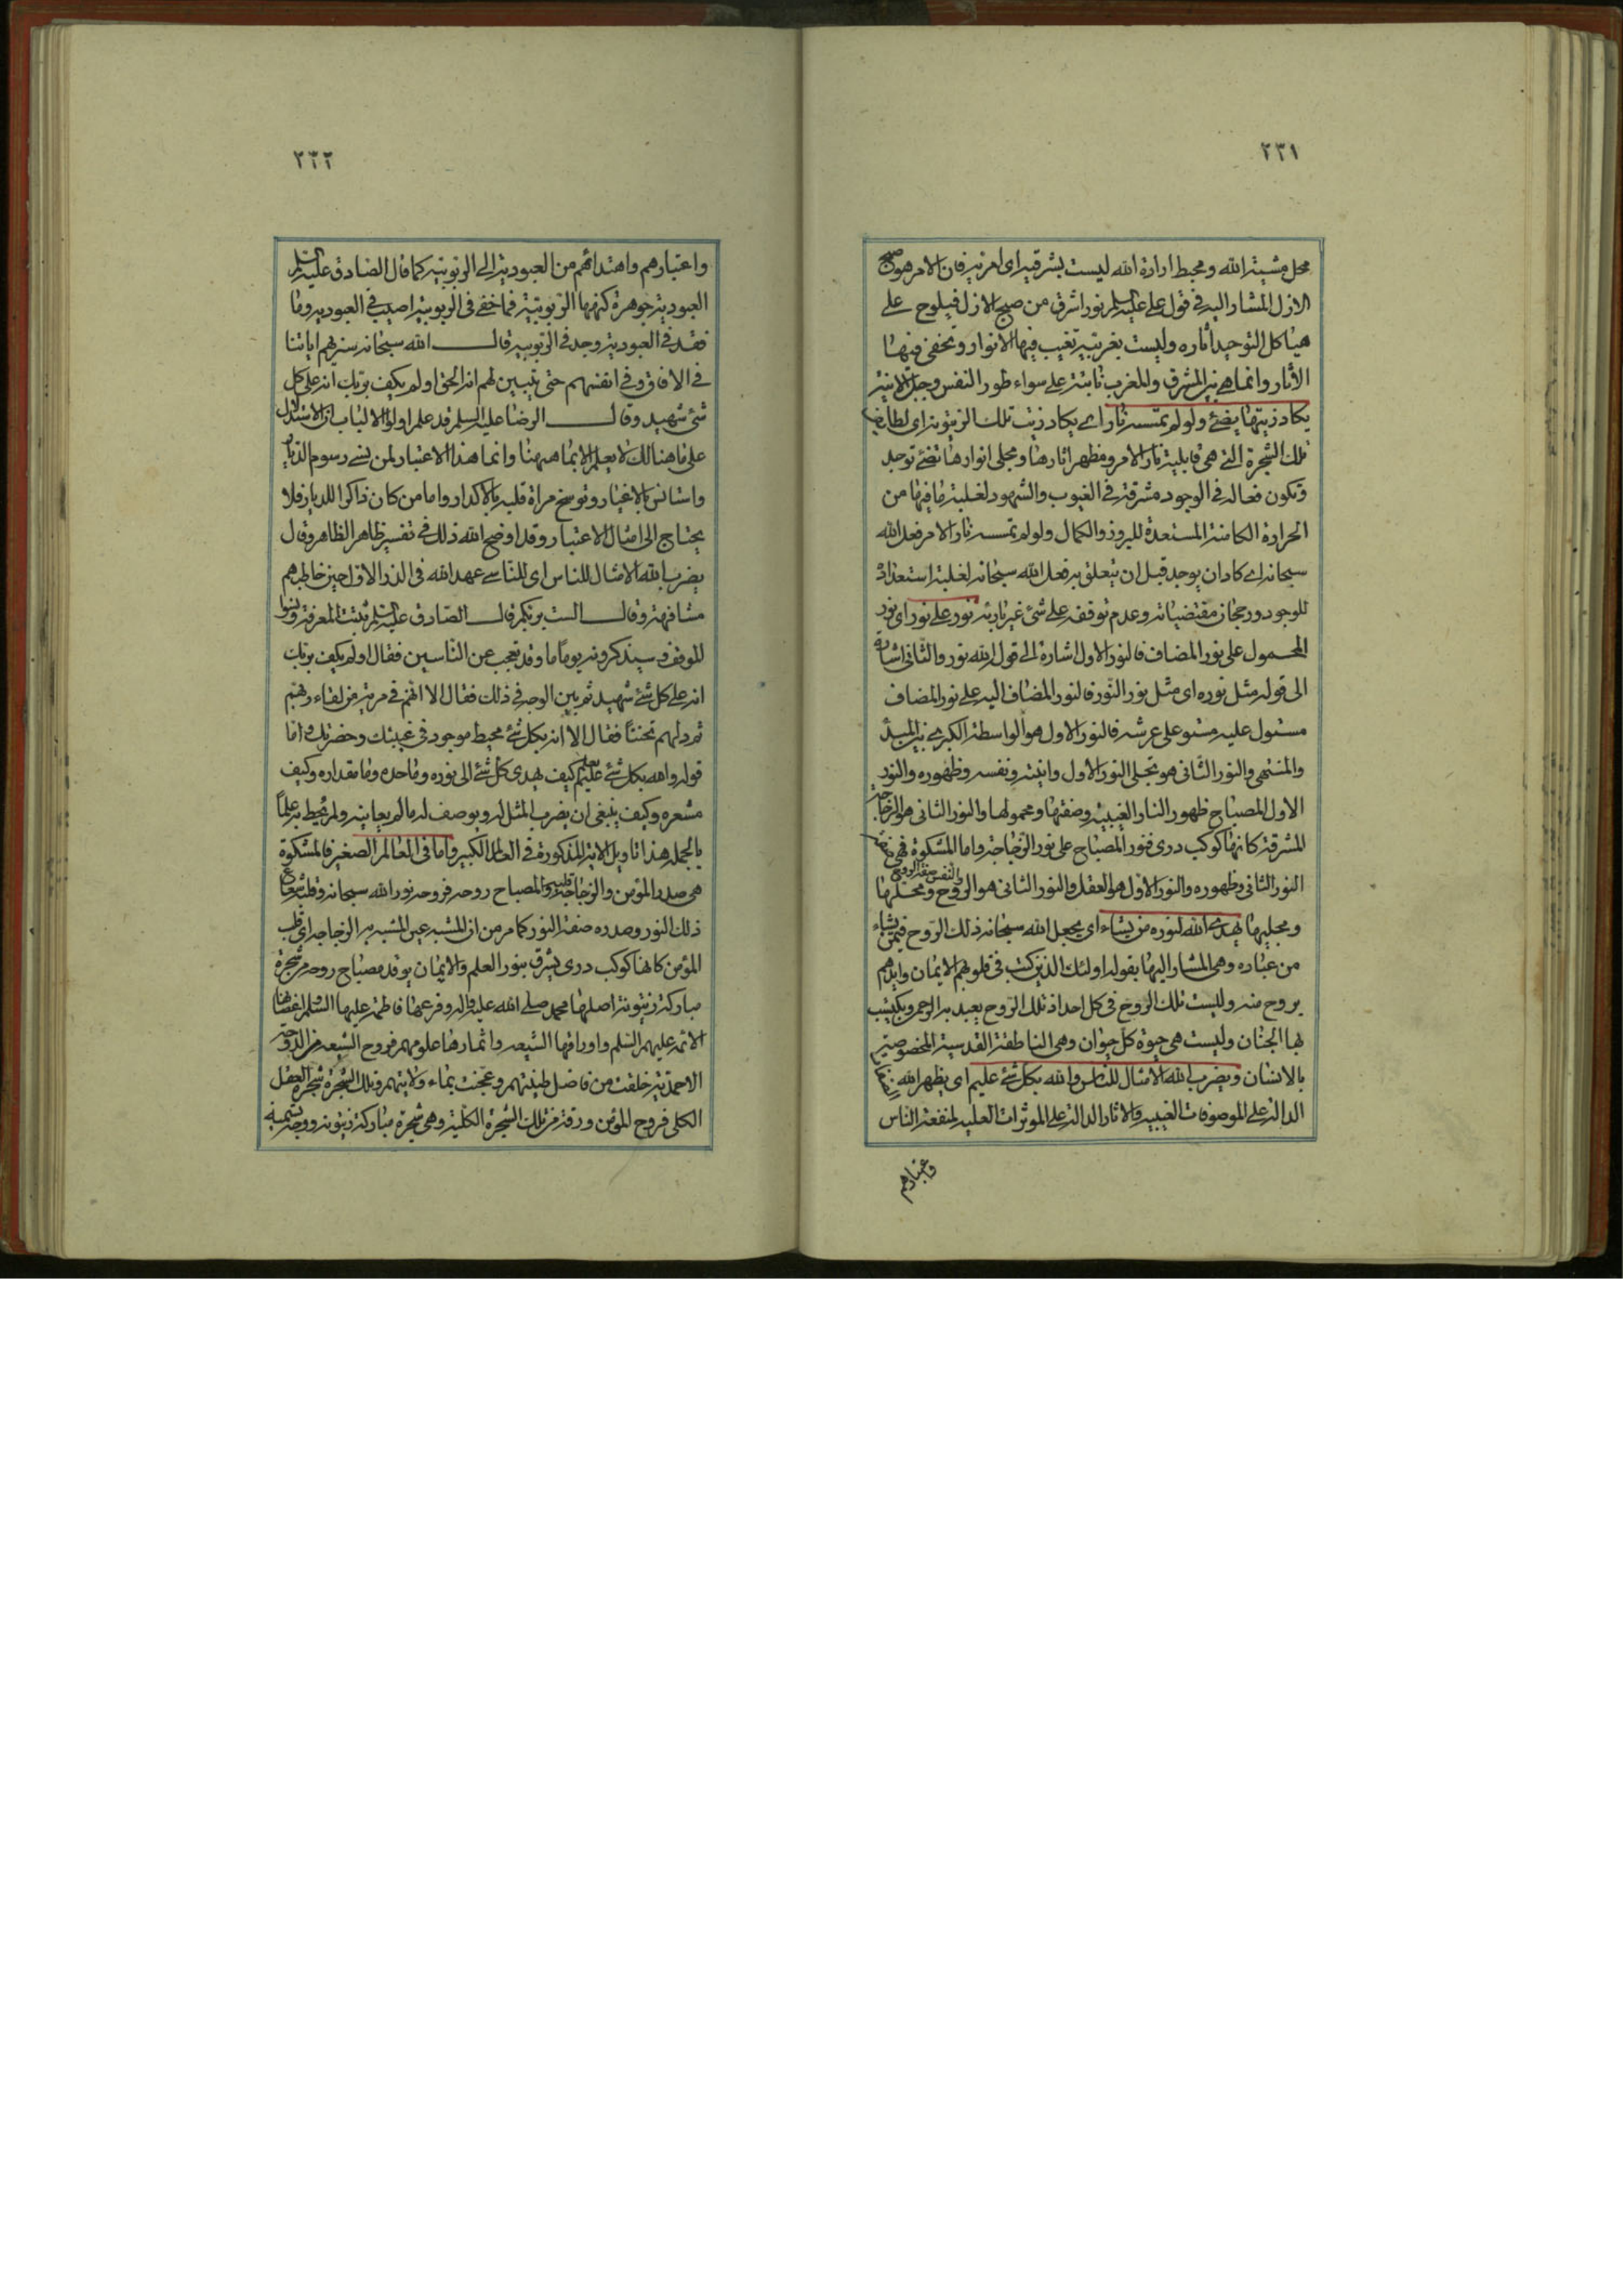 ٢٣١
محل مشیته الله ومحیط ارادة الله لیست بشرقیه ای امریه فان الامر هو صبح
الازل المشار الیه فی قول علی علیه السلم نور اشرق من صبح الازل فیلوح علی
هیاکل التوحید آثاره ولیست بغربیة تغیب فیها الانوار وتخفی فیها
الآثار وانما هی بین المشرق والمغرب ثابتة علی سواء طور النفس وجبل الانیة
یکاد زیتها یضئ ولو لم تمسسه نار ای یکاد زیت تلک الزیتونة ای لطایف
تلک الشجرة التی هی قابلیة نار الامر ومظهر اثارها ومجلی انوارها تضئ توجد
وتکون فعاله فی الوجود مشرقة فی الغیوب والشهود لغلبة ما فیها من
الحرارة الکامنة المستعدة للبروز والکمال ولو لم تمسسه نار الامر فعل الله
سبحانه ای کاد ان یوجد قبل ان یتعلق به فعل الله سبحانه لغلبة استعداده
للوجود ورجحان مقتضیاته وعدم توقفه علی شئ غیر بارئه نور علی نور ای نور
المحمول علی نور المضاف فالنور الاول اشارة الی قوله الله نور والثانی اشارة
الی قوله مثل نوره ای مثل نور النور فالنور المضاف الیه علی نور المضاف
مستول علیه مستو علی عرشه فالنور الاول هو الواسطة الکبری بین المبدأ
والمنتهی والنور الثانی هو تجلی النور الاول وانیته ونفسه وظهوره والنور
الاول المصباح ظهور النار الغیبیة وصفتها ومحمولها والنور الثانی هو الزجاجة
المشرقة کانها کوکب دری فنور المصباح علی نور الزجاجة واما المشکوة فهی
النور الثانی وظهوره والنور الاول هو العقل والنور الثانی هو الروح والنفس صفة الروح ومحلها
ومجلیها یهدی الله لنوره من یشاء ای یجعل الله سبحانه ذلک الروح فیمن یشاء
من عباده وهی المشار الیها بقوله اولئک الذین کتب فی قلوبهم الایمان وایدهم
بروح منه ولیست تلک الروح فی کل احد اذ تلک الروح یعبد به الرحمن ویکتسب
بها الجنان ولیست هی حیوة کل حیوان وهی الناطقة القدسیة المخصوصة
بالانسان ویضرب الله الامثال للناس والله بکل شئ علیم ای یظهر الله
الدالة علی الموصوفات الغیبیه والاثار الدالة علی الموثرات العلیه لمنفعة الناس
واعتبارهم
٢٣٢
واعتبارهم واهتدائهم من العبودیة الی الربوبیة کما قال الصادق علیه السلم
العبودیة جوهرة کنهها الربوبیة فما خفی فی الربوبیة اصیب فی العبودیه وما
فقد فی العبودیة وجد فی الربوبیة قال الله سبحانه سنریهم ایاتنا
فی الافاق وفی انفسهم حتی یتبین لهم انه الحق اولم یکف بربک انه علی کل
شئ شهید وقال الرضا علیه السلم قد علم اولوا الالباب ان الاستدلال
علی ما هنالک لا یعلم الا بما هیهنا وانما هذا الاعتبار لمن نسی رسوم الدیار
واستانس بالاغیار وتوسخ مراة قلبه بالاکدار واما من کان ذاکرا للدیار فلا
یحتاج الی امثال الاعتبار وقد اوضح الله ذلک فی تفسیر ظاهر الظاهر وقال
یضرب الله الامثال للناس ای للناسی عهد الله فی الذر الاول حین خاطبهم
مشافهة وقال الست بربکم قال الصادق علیه السلم ثبتت المعرفة ونسوا
الموقف وسیذکرونه یوماً ما وقد تعجب عن الناسین فقال اولم یکف بربک
انه علی کل شئ شهید ثم بین الوجه فی ذلک فقال الا انهم فی مریة من لقاء ربهم
ثم دلهم تحننا فقال الا انه بکل شئ محیط موجود فی غیبتک وحضرتک واما
قوله والله بکل شئ علیم یعلم کیف یهدی کل شئ الی نوره وما حده وما مقداره وکیف
مشعره وکیف ینبغی ان یضرب المثل له ویوصف له مالم یعاینه ولم یحیط به علماً
بالجمله هذا تاویل الایة المذکورة فی العالم الکبیر واما فی العالم الصغیر فالمشکوة
هی صدر المؤمن والزجاجة قلبه والمصباح روحه فروحه نور الله سبحانه وقلبه شعاع
ذلک النور وصدره صفة النور کما مر من ان المشبه عین المشبه به الزجاجة ای قلب
المؤمن کانها کوکب دری یشرق بنور العلم والایمان یوقد مصباح روحه من شجرة
مبارکة زیتونة اصلها محمد صلی الله علیه واله وفرعها فاطمة علیها السلم اغصانها
الائمة علیهم السلم واوراقها الشیعه واثمارها علومهم فروح الشیعه من الدوحة
الاحمدیة خلقت من فاضل طینتهم وعجنت بماء ولایتهم وتلک الشجرة شجرة العقل
الکلی فروح المؤمن ورقة من تلک الشجرة الکلیة وهی شجرة مبارکة زیتونه ووجه تسمیة